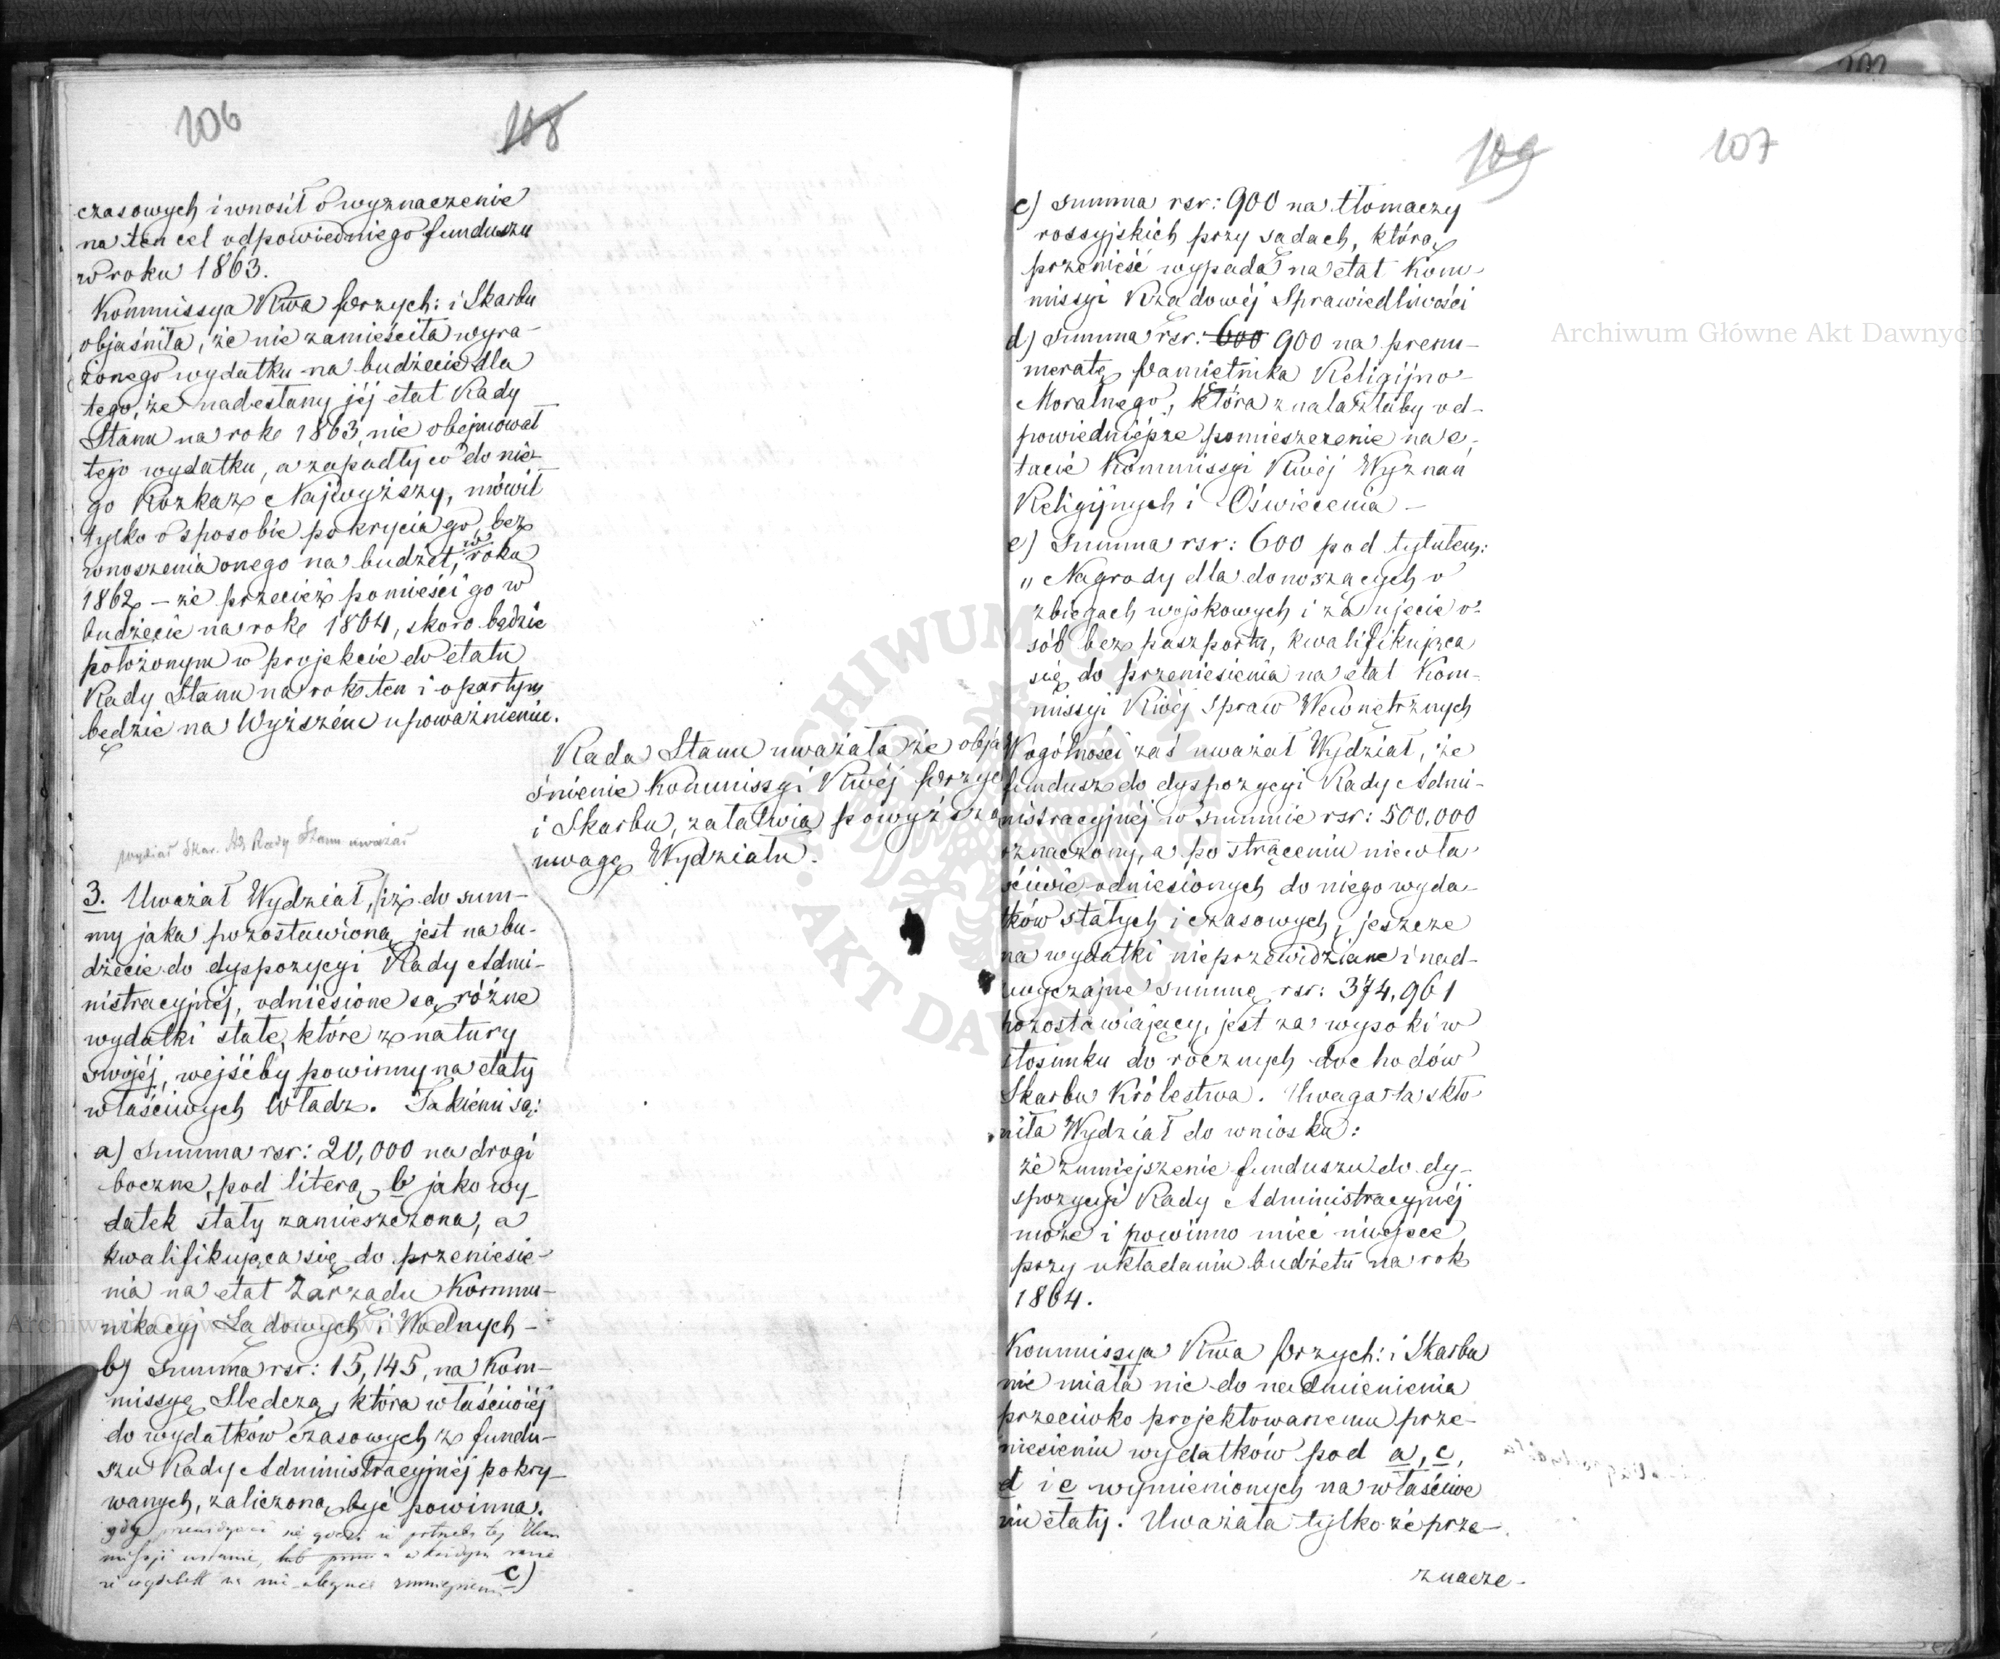 106
108
czasowych i wnosił o wyznaczenie
na ten cel odpowiedniego funduszu
w roku 1863.
Kommissya Rwa Przych: i Skarbu
objaśniła, że nie zamieściła wyra-
żonego wydatku na budżecie dla
tego, że nadesłany jéj etat Rady
Stanu na rok 1863, nie obejmował
tego wydatku, a zapadły co do nie-
go Rozkaz Najwyższy, mówił
tylko o sposobie pokrycia go, bez
wnoszenia onego na budżet, w roku
1862 – że przecież pomieści go w
budżecie na rok 1864, skoro będzie
położonym w projekcie do etatu
Rady Stanu na rok ten i opartym
będzie na Wyższém upoważnieniu.
Rada Stanu uważała że obja
śnienie Kommissyi Rwéj Przych
i Skarbu, załatwia powyższą
uwagę Wydziału.
Wydział Skar. Ad. Rady Stanu uważał
3. Uważał Wydział, iż do sum-
my jaka pozostawioną jest na bu-
dżecie do dyspozycyi Rady Admi-
nistracyjnéj, odniesione są różne
wydatki stałe, które z natury
swojéj, wejśćby powinny na etaty
właściwych Władz. Takiemi są:
a) Summa rsr: 20,000 na drogi
boczne, pod literą b jako wy-
datek stały zamieszczona, a
kwalifikująca się do przeniesie-
nia na etat Zarządu Kommu-
nikacyj Lądowych i Wodnych –
b) Summa rsr: 15,145, na Kom-
missyę Śledczą, która właściwiéj
do wydatków czasowych z fundu-
szu Rady Administracyjnéj pokry-
wanych, zaliczoną być powinna.
gdyż przewidywać się godzi iż potrzeba téj Kom
missyi ustanie, w każdym razie
iż wydatek na nią ulegnie zmniejszeniu
c)
109
107
c) Summa rsr: 900 na tłomaczy
rossyjskich przy sądach, którą
przenieść wypada na etat Kom-
missyi Rządowéj Sprawiedliwości
d) Summa rsr: 600 900 na prenu-
meratę Pamiętnika Religijno-
Moralnego, która znalazłaby od-
powiedniejsze pomieszczenie na e-
tacie Kommissyi Rwéj Wyznań
Religijnych i Oświecenia –
e) Summa rsr: 600 pod tytułem:
„Nagrody dla donoszących o
zbiegach wojskowych i za ujęcie o-
sób bez paszportu, kwalifikująca
się do przeniesienia na etat Kom-
missyi Rwéj Spraw Wewnętrznych
W ogólności zaś uważał Wydział, że
fundusz do dyspozycyi Rady Admi-
nistracyjnéj w summie rsr: 500,000
oznaczony, a po strąceniu niewła-
ściwie odniesionych do niego wyda-
tków stałych i czasowych, jeszcze
na wydatki nieprzewidziane i nad-
zwyczajne summę rsr: 374,961
pozostawiający, jest za wysoki w
stosunku do rocznych dochodów
Skarbu Królestwa. Uwaga ta skło-
niła Wydział do wniosku:
że zmniejszenie funduszu do dy-
spozycyi Rady Administracyjnéj
może i powinno mieć miejsce
przy układaniu budżetu na rok
1864.
Kommissya Rwa Przych: i Skarbu
nie miała nic do nadmienienia
przeciwko projektowanemu prze-
niesieniu wydatków pod a, c,
d i e wymienionych na właściwe
im etaty. Uważała tylko że prze-
znacze-
Archiwum Główne Akt Dawnych
Archiwum Główne Akt Dawnych
ARCHIWUM GŁÓWNE AKT DAWNYCH